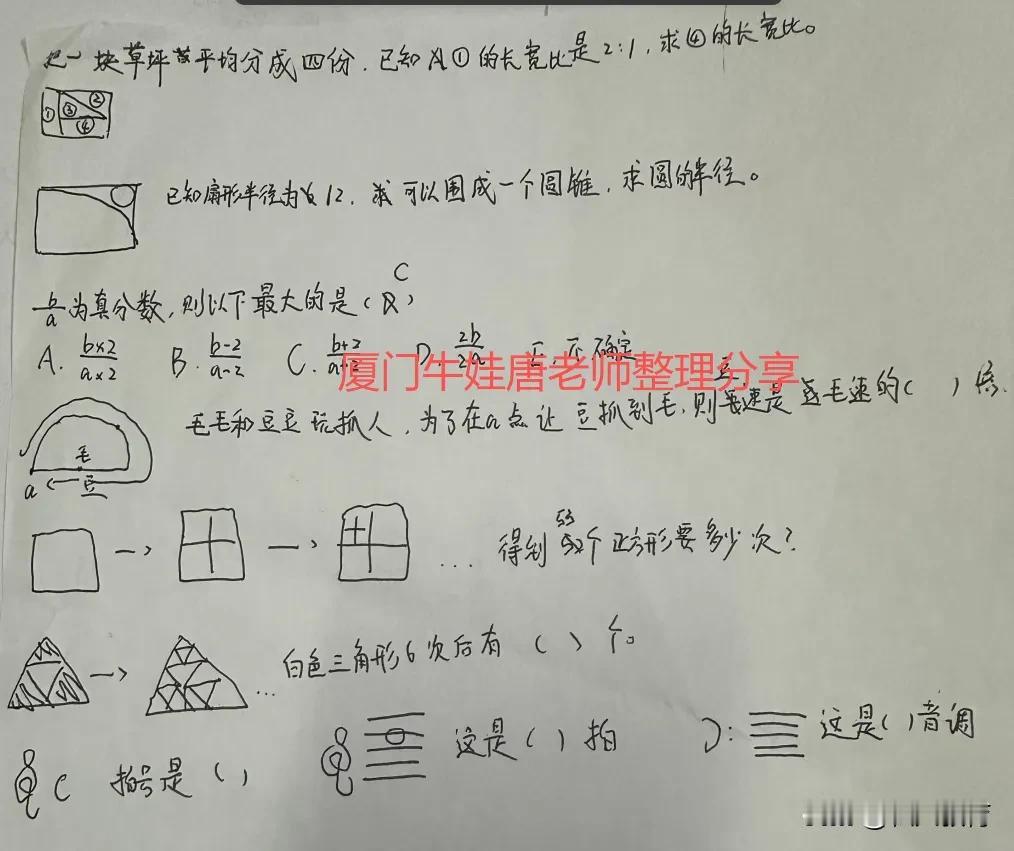 把一块草坪平均分成四份.已知①的长宽比是2:1,求④的长宽比。
① ② ③ ④
已知扇形半径为12,求可以围成一个圆锥,求圆的半径。
b/a为真分数,则以下最大的是(C)
A. b×2/a×2 B. b-2/a-2 C. b+2/a+2 D. 2b/2a E.不确定
厦门牛娃唐老师整理分享
毛毛和豆豆玩抓人,为了在a点让豆抓到毛,则豆速是毛速的( )倍.
毛
a ← 豆
… 得到53个正方形要多少次?
… 白色三角形6次后有( )个。
C 拍号是( )
这是( )拍
这是( )音调